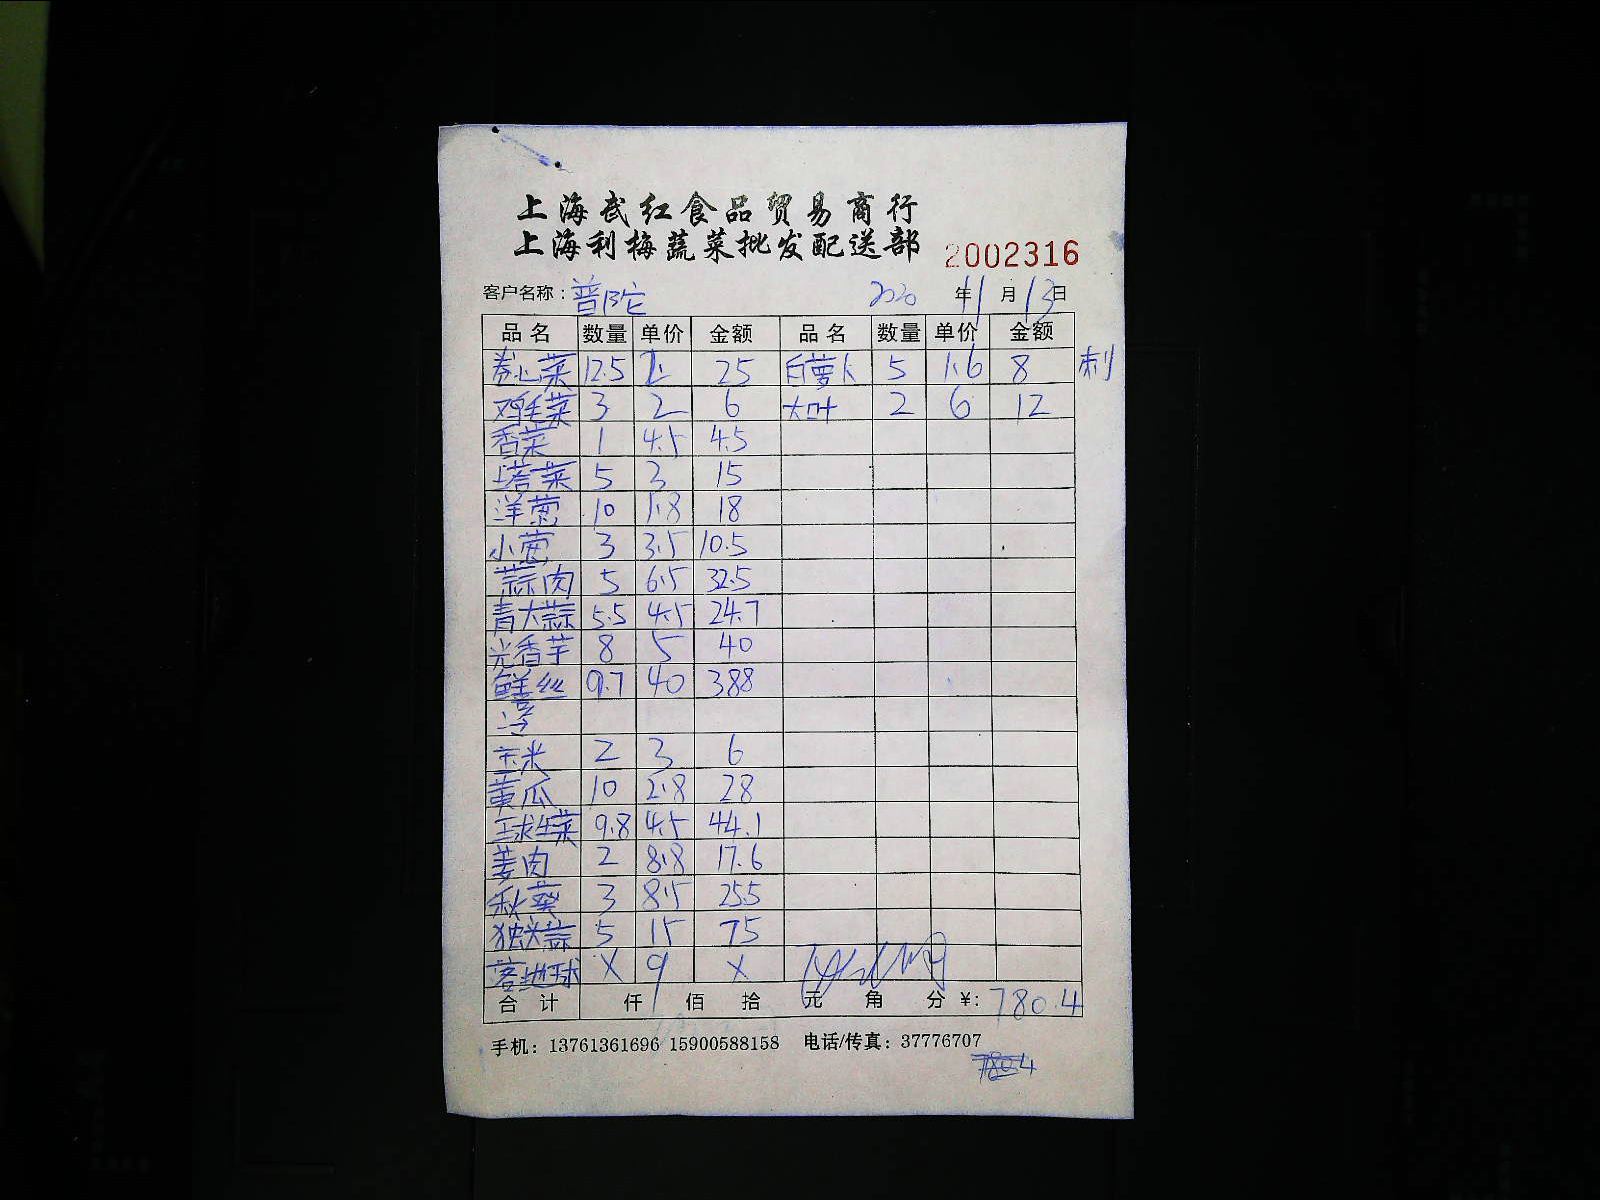 上海武红食品贸易商行
上海利梅蔬菜批发配送部 2002316
客户名称：普陀 2020 年 11 月 13 日
品名 数量 单价 金额 品名 数量 单价 金额
卷心菜 12.5 2 25 白萝卜 5 1.6 8 刺
鸡毛菜 3 2 6 大叶 2 6 12
香菜 1 4.5 4.5
塔菜 5 3 15
洋葱 10 1.8 18
小葱 3 3.5 10.5
蒜肉 5 6.5 32.5
青大蒜 5.5 4.5 24.7
光香芋 8 5 40
鲜丝 9.7 40 388
玉米 2 3 6
黄瓜 10 2.8 28
球生菜 9.8 4.5 44.1
姜肉 2 8.8 17.6
秋葵 3 8.5 25.5
独头蒜 5 15 75
落地球 X 9 X
合计 仟 佰 拾 元 角 分 ¥: 780.4
手机：13761361696 15900588158 电话/传真：37776707
780.4